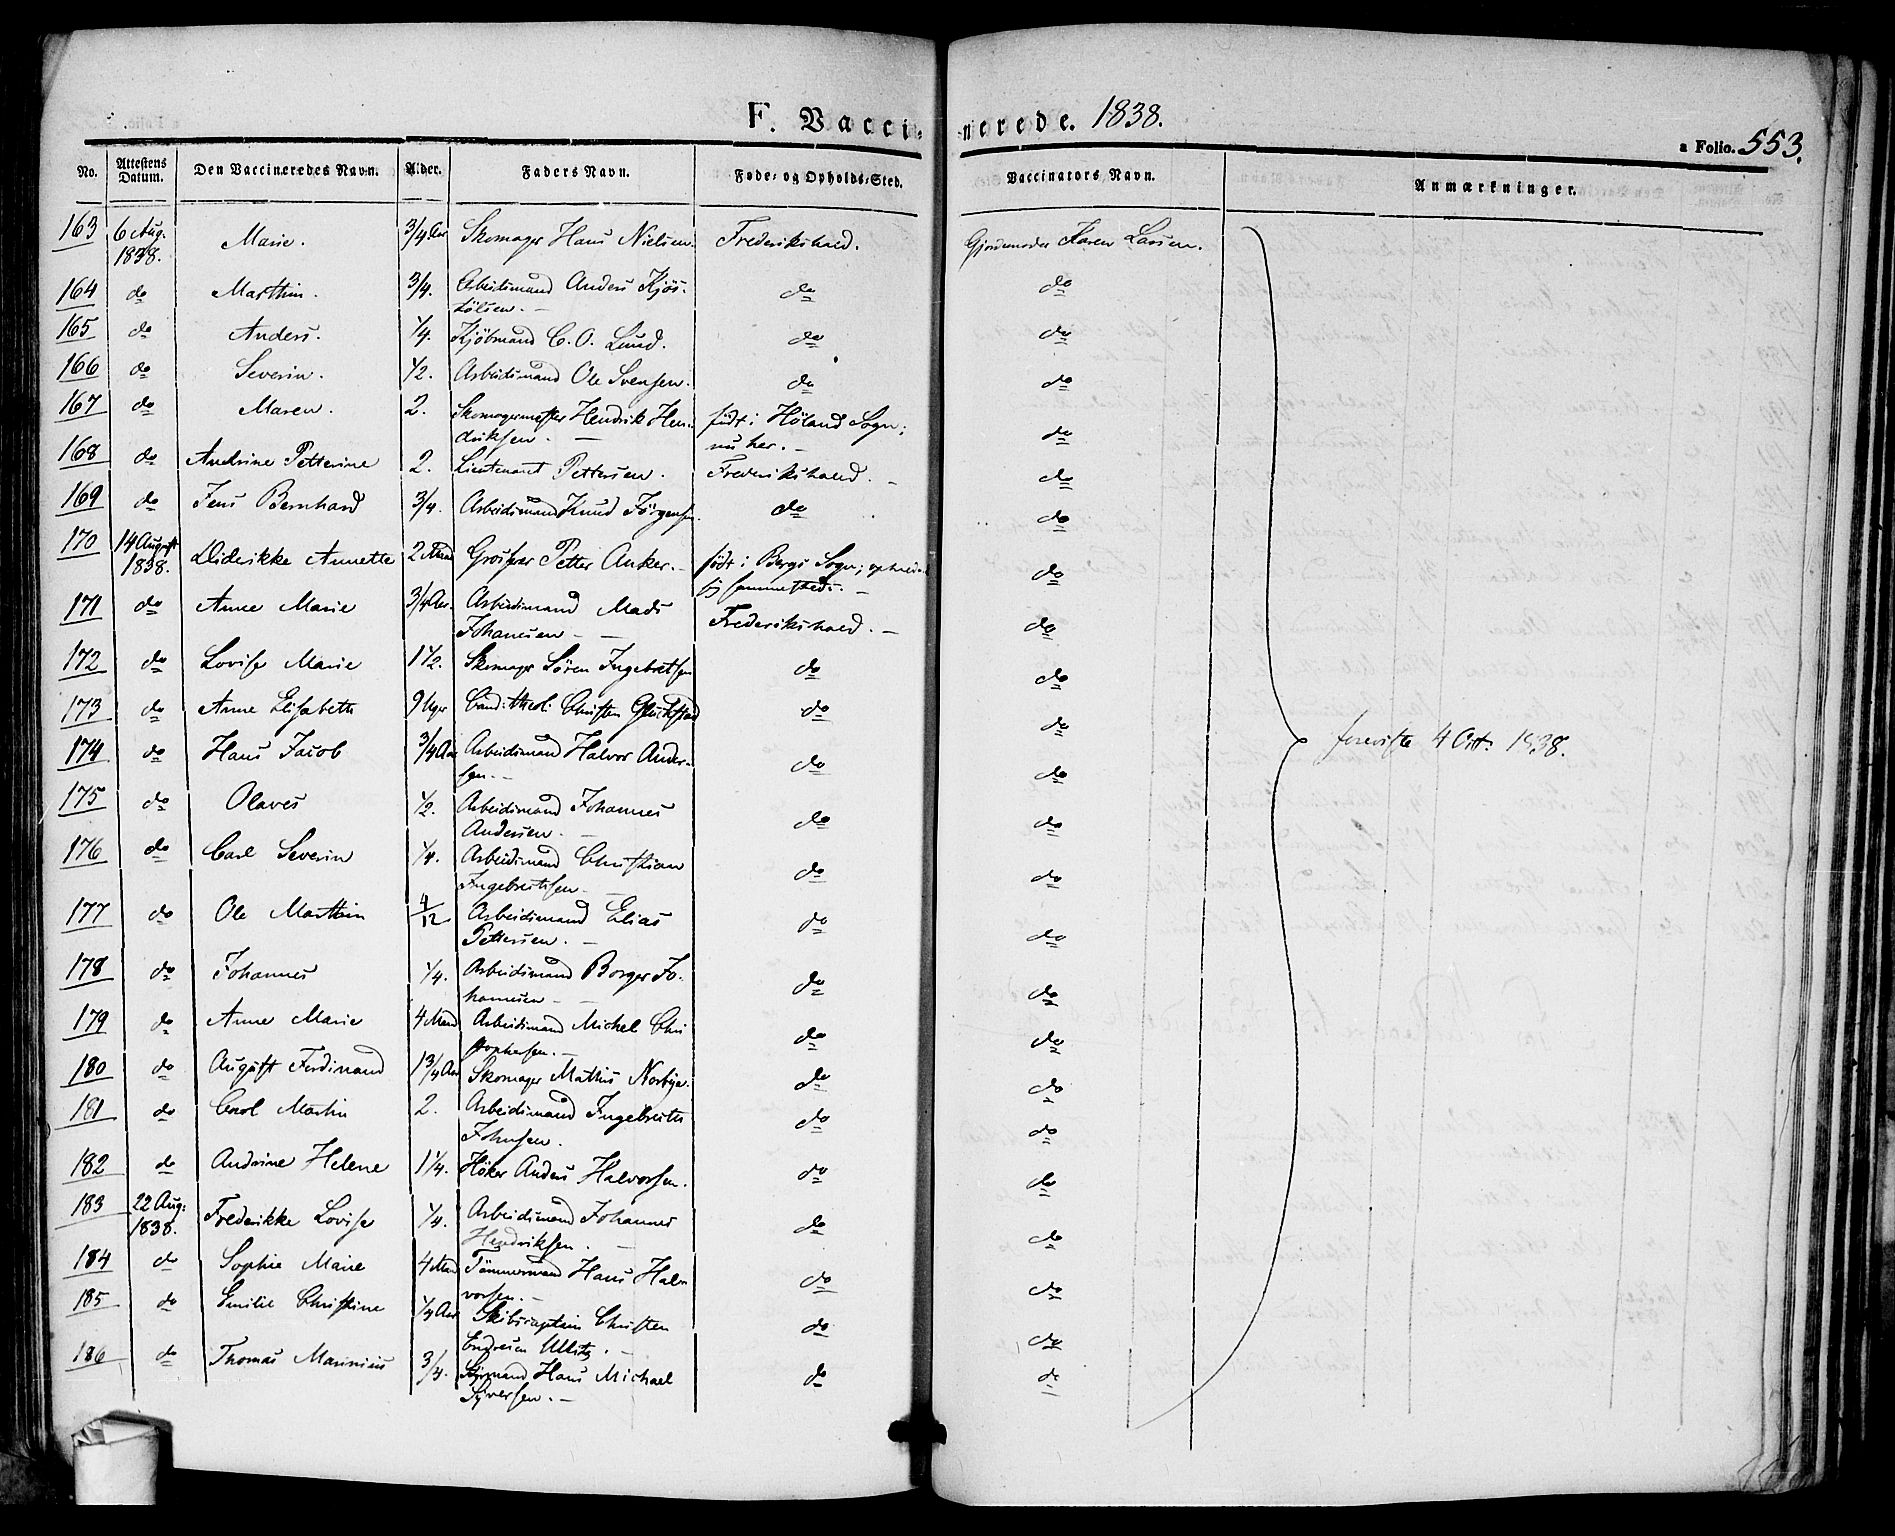 F. Vaccinerede. 1838.
a Folio. 553.
No. Attestens Datum. Den Vaccineredes Navn. Alder. Faders Navn. Føde- og Opholds-Sted. Vaccinators Navn. Anmærkninger.
163 6 Aug. 1838. Marie. 3/4 Aar Skomager Hans Nielsen. Frederikshald. Gjordemoder Karen Larsen.
164 do Marthin. 3/4. Arbeidsmand Anders Kjös-
tölsen. — do do
165 do Anders. 1/4. Kjöbmand C. O. Lund. do do
166 do Severin. 1/2. Arbeidsmand Ole Svensen. do do
167 do Maren. 2. Skomagermester Hendrik Hen-
driksen. — født i Höland Sogn;
nu her. — do
168 do Andrine Petterine 2. Lieutenant Pettersen. Frederikshald. — do
169 do Jens Bernhard 3/4. Arbeidsmand Knud Jörgensen. do do
170 14 August 1838. Diderikke Annette 2 Grosserer Petter Anker. — født i Bergs Sogn;
sammesteds. — do
171 do Anne Marie 3/4 Aar. Arbeidsmand Mads
Johansen — Frederikshald. — do
172 do Lovise Marie 1 1/2. Skomager Sören Ingebretsen do do
173 do Anne Elisabeth 9 Uger Cand: theol: Christen Glückstad do do
174 do Hans Jacob 3/4 Aar Arbeidsmand Halvor Ander-
sen. — do do
foreviste 4 Oct: 1838.
175 do Olaves 1/2. Arbeidsmand Johannes
Andersen. — do do
176 do Carl Severin 1/4. Arbeidsmand Christian
Ingebretsen — do do
177 do Ole Marthin 4/12 Arbeidsmand Elias
Pettersen. — do do
178 do Johannes 1/4. Arbeidsmand Borger Jo-
hannesen — do do
179 do Anne Marie 4 Mand Arbeidsmand Michel Chri
stophersen. — do do
180 do August Ferdinand 1 3/4 Aar Skomager Mathis Norbye. do do
181 do Carl Martin 2. Arbeidsmand Ingebreth
Johnsen. do do
182 do Andrine Helene 1 1/4. Höker Anders Halvorsen. do do
183 22 Aug: 1838. Frederikke Lovise 1/4. Arbeidsmand Johannes
Hendriksen. — do do
184 do Sophie Marie 4 Mand Tömmermand Hans Halv
vorsen. — do do
185 do Emilie Christine 1/4 Aar Skibscaptein Christen
Endresen — do do
186 do Thomas Marinius 3/4. Styrmand Hans Michael
Syversen. — do do